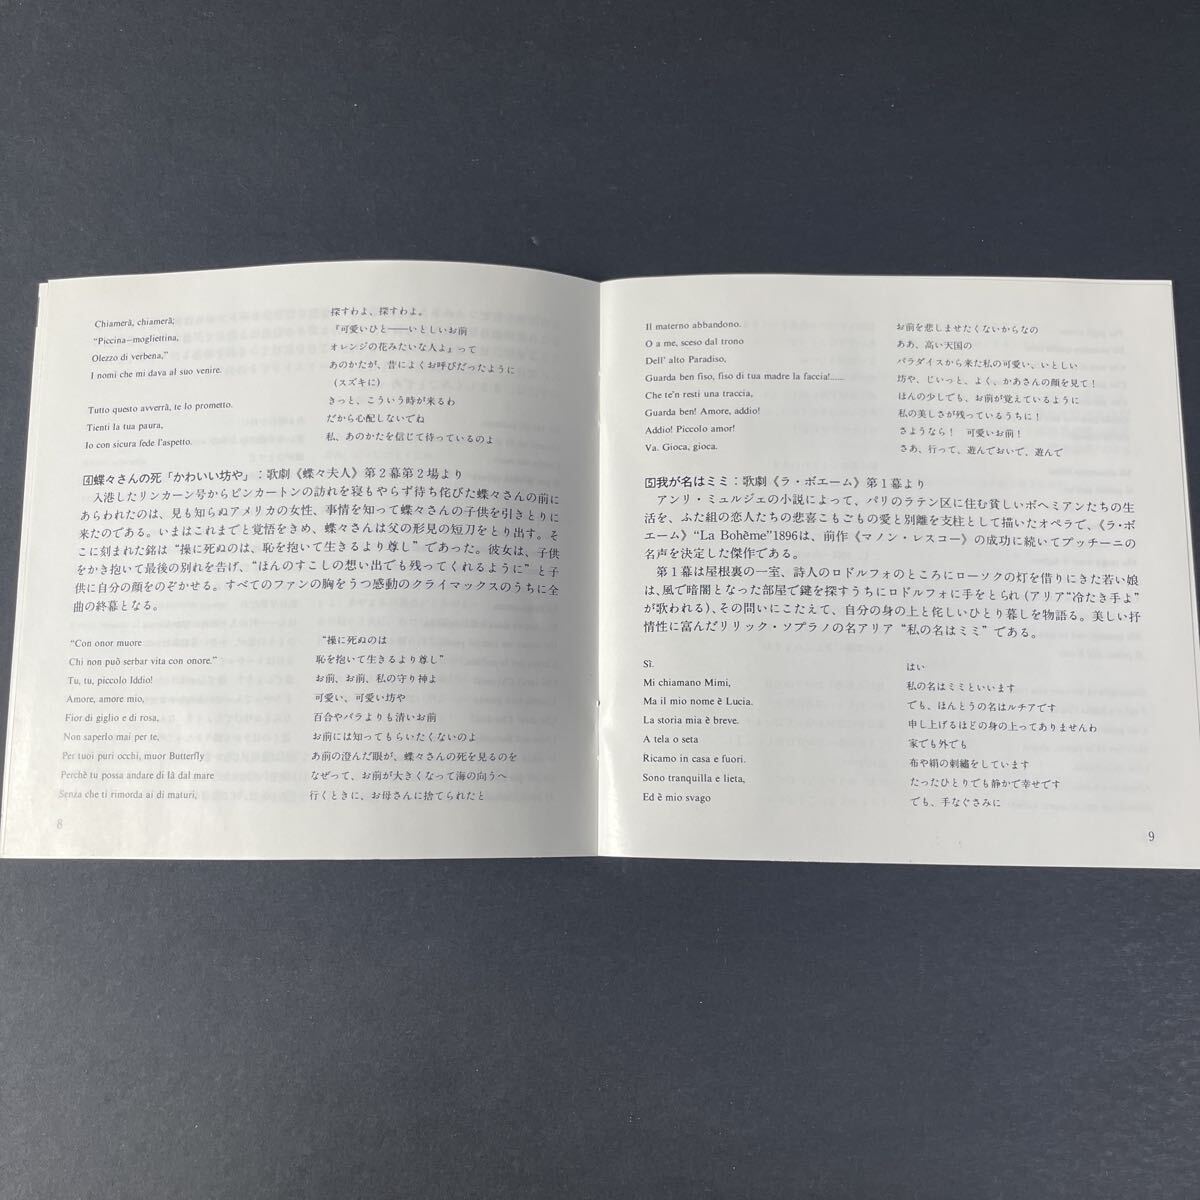 Chiamerà, chiamerà;
"Piccina—mogliettina,
Olezzo di verbena,"
I nomi che mi dava al suo venire.
Tutto questo avverrà, te lo prometto.
Tienti la tua paura,
Io con sicura fede l'aspetto.
探すわよ、探すわよ。
『可愛いひと――いとしいお前
オレンジの花みたいな人よ』って
あのかたが、昔によくお呼びだったように
(スズキに)
きっと、こういう時が来るわ
だから心配しないでね
私、あのかたを信じて待っているのよ
4蝶々さんの死「かわいい坊や」：歌劇《蝶々夫人》第2幕第2場より
入港したリンカーン号からピンカートンの訪れを寝もやらず待ち侘びた蝶々さんの前に
あらわれたのは、見も知らぬアメリカの女性、事情を知って蝶々さんの子供を引きとりに
来たのである。いまはこれまでと覚悟をきめ、蝶々さんは父の形見の短刀をとり出す。そ
こに刻まれた銘は"操に死ぬのは、恥を抱いて生きるより尊し"であった。彼女は、子供
をかき抱いて最後の別れを告げ、"ほんのすこしの想い出でも残ってくれるように"と子
供に自分の顔をのぞかせる。すべてのファンの胸をうつ感動のクライマックスのうちに全
曲の終幕となる。
"Con onor muore
Chi non può serbar vita con onore."
Tu, tu, piccolo Iddio!
Amore, amore mio,
Fior di giglio e di rosa,
Non saperlo mai per te,
Per tuoi puri occhi, muor Butterfly
Perchè tu possa andare di là dal mare
Senza che ti rimorda ai di maturi,
"操に死ぬのは
恥を抱いて生きるより尊し"
お前、お前、私の守り神よ
可愛い、可愛い坊や
百合やバラよりも清いお前
お前には知ってもらいたくないのよ
あ前の澄んだ眼が、蝶々さんの死を見るのを
なぜって、お前が大きくなって海の向うへ
行くときに、お母さんに捨てられたと
8
Il materno abbandono.
O a me, sceso dal trono
Dell' alto Paradiso,
Guarda ben fiso, fiso di tua madre la faccia!......
Che te'n resti una traccia,
Guarda ben! Amore, addio!
Addio! Piccolo amor!
Va. Gioca, gioca.
お前を悲しませたくないからなの
ああ、高い天国の
パラダイスから来た私の可愛い、いとしい
坊や、じいっと、よく、かあさんの顔を見て！
ほんの少しでも、お前が覚えているように
私の美しさが残っているうちに！
さようなら！　可愛いお前！
さあ、行って、遊んでおいで、遊んで
5我が名はミミ：歌劇《ラ・ボエーム》第1幕より
アンリ・ミュルジェの小説によって、パリのラテン区に住む貧しいボヘミアンたちの生
活を、ふた組の恋人たちの悲喜こもごもの愛と別離を支柱として描いたオペラで、《ラ・ボ
エーム》"La Bohème"1896は、前作《マノン・レスコー》の成功に続いてプッチーニの
名声を決定した傑作である。
第1幕は屋根裏の一室、詩人のロドルフォのところにローソクの灯を借りにきた若い娘
は、風で暗闇となった部屋で鍵を探すうちにロドルフォに手をとられ(アリア"冷たき手よ"
が歌われる)、その問いにこたえて、自分の身の上と侘しいひとり暮しを物語る。美しい抒
情性に富んだリリック・ソプラノの名アリア "私の名はミミ" である。
Sì.
Mi chiamano Mimi,
Ma il mio nome è Lucia.
La storia mia è breve.
A tela o seta
Ricamo in casa e fuori.
Sono tranquilla e lieta,
Ed è mio svago
はい
私の名はミミといいます
でも、ほんとうの名はルチアです
申し上げるほどの身の上ってありませんわ
家でも外でも
布や絹の刺繡をしています
たったひとりでも静かで幸せです
でも、手なぐさみに
9